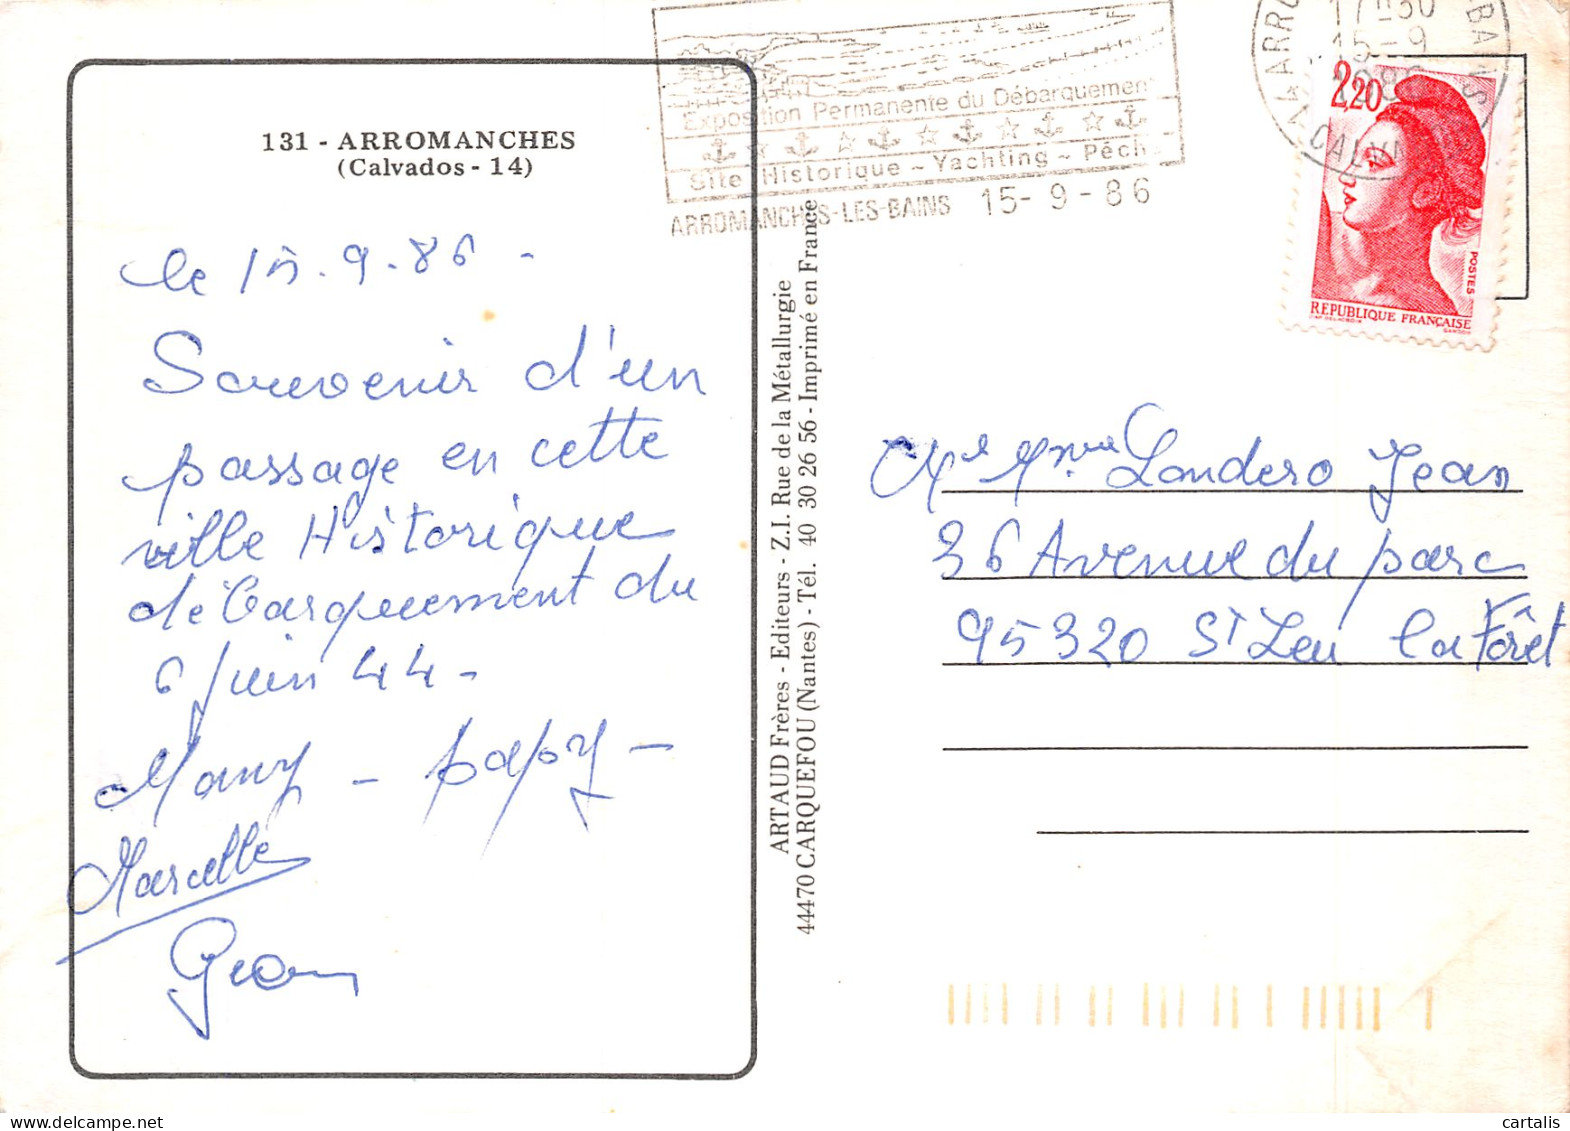 131 - ARROMANCHES
(Calvados - 14)
le 15.9.86 -
Souvenir d'un
passage en cette
ville Historique
débarquement du
6 juin 44 -
Mamy - papy -
Marcelle
Jean
Exposition Permanente du Débarquement
Site Historique ~ Yachting ~ Pêch
ARROMANCHES-LES-BAINS 15-9-86
ARTAUD Frères - Editeurs - Z.I. Rue de la Métallurgie
44470 CARQUEFOU (Nantes) - Tél. 40 30 26 56 - Imprimé en France
14 ARRO
BAINS
15-9
CALVA
2,20
POSTES
REPUBLIQUE FRANÇAISE
Mr Mme Landero Jean
36 Avenue du parc
95320 St Leu la Forêt
cartalis